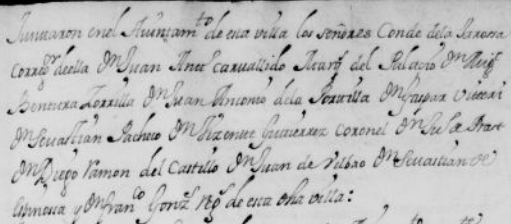 Juntaron en el Aiuntam.to de esta villa los señores Conde de la Jarosa
Correg.r de ella D.n Juan Ant.o Carvallido Marq.s del Palacio D.n
Bentura Zorrilla D.n Juan Antonio de la Portilla D.n Gaspar
D.n Sevastian Pacheco D.n Vizente Gutierrez Coronel D.n
D.n Diego Ramon del Castillo D.n Juan de Vilbao D.n Sevastian de
Espinosa y D.n Fran.co Gonz.z Rg.s de esta dha villa: